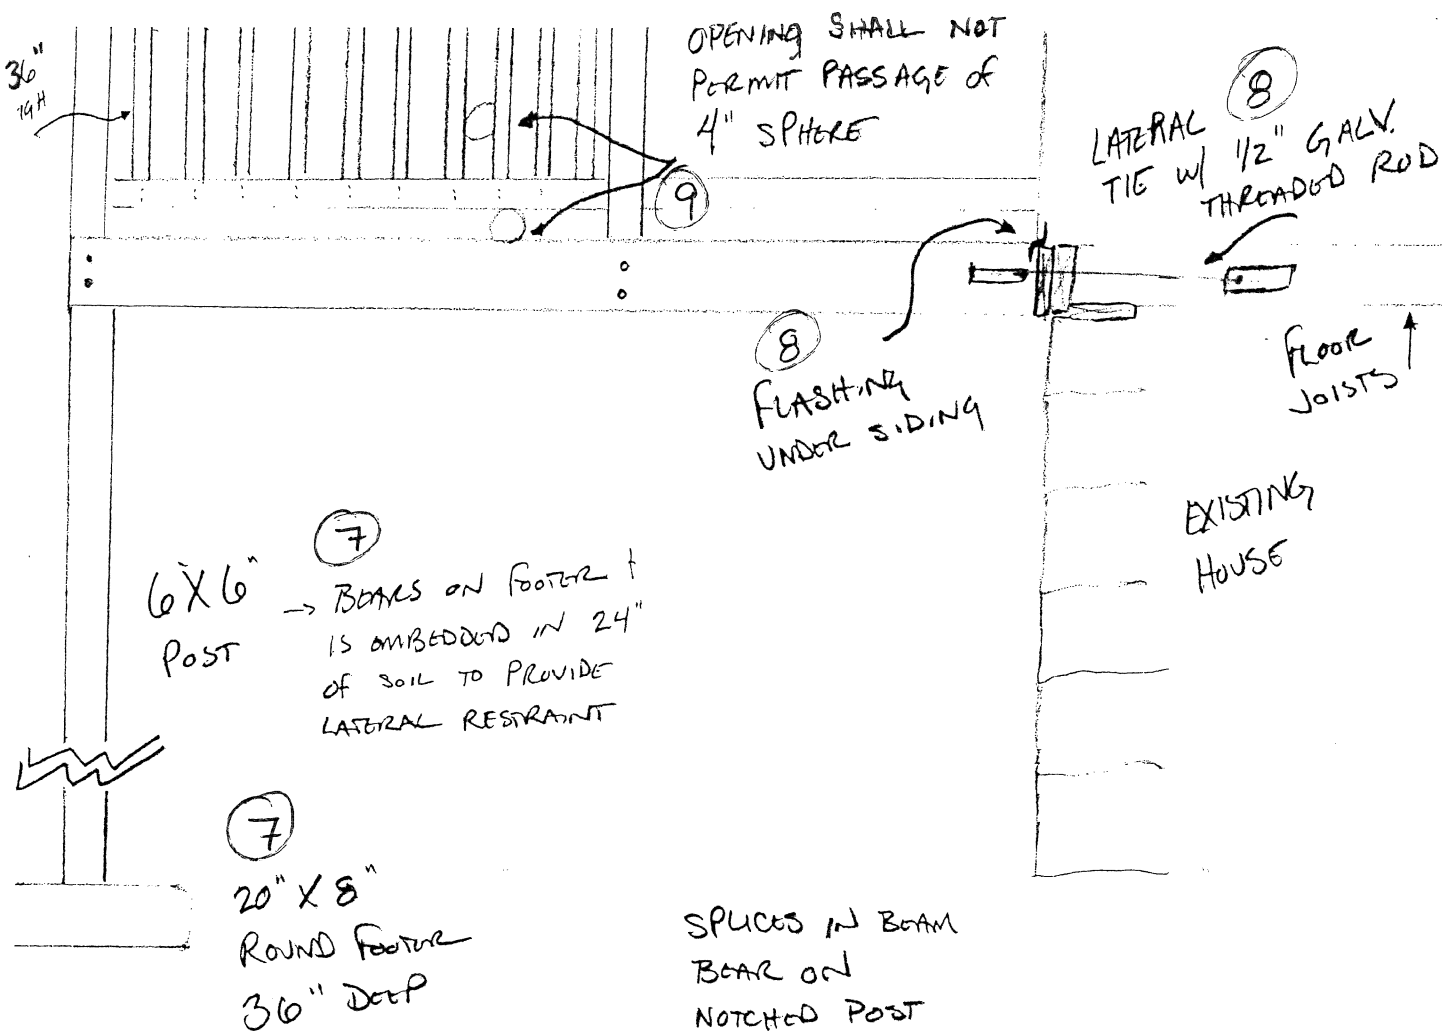 OPENING SHALL NOT
PERMIT PASSAGE of
4" SPHERE
9
36"
HGH
8
LATERAL
TIE W/ 1/2" GALV.
THREADED ROD
8
FLASHING
UNDER SIDING
FLOOR
JOISTS
EXISTING
HOUSE
6X6"
POST
7
→ BEARS ON FOOTER +
IS EMBEDDED IN 24"
of SOIL TO PROVIDE
LATERAL RESTRAINT
7
20" X 8"
ROUND FOOTER
36" DEEP
SPLICES IN BEAM
BEAR ON
NOTCHED POST